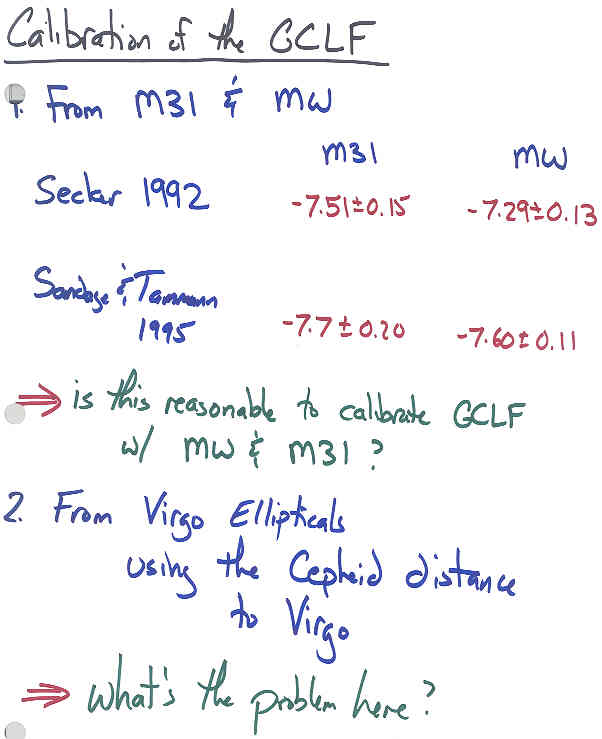 Calibration of the GCLF
1. From M31 & MW
M31 MW
Secker 1992 -7.51±0.15 -7.29±0.13
Sandage & Tammann
1995 -7.7±0.20 -7.60±0.11
⇒ is this reasonable to calibrate GCLF
w/ MW & M31?
2. From Virgo Ellipticals
using the Cepheid distance
to Virgo
⇒ What's the problem here?